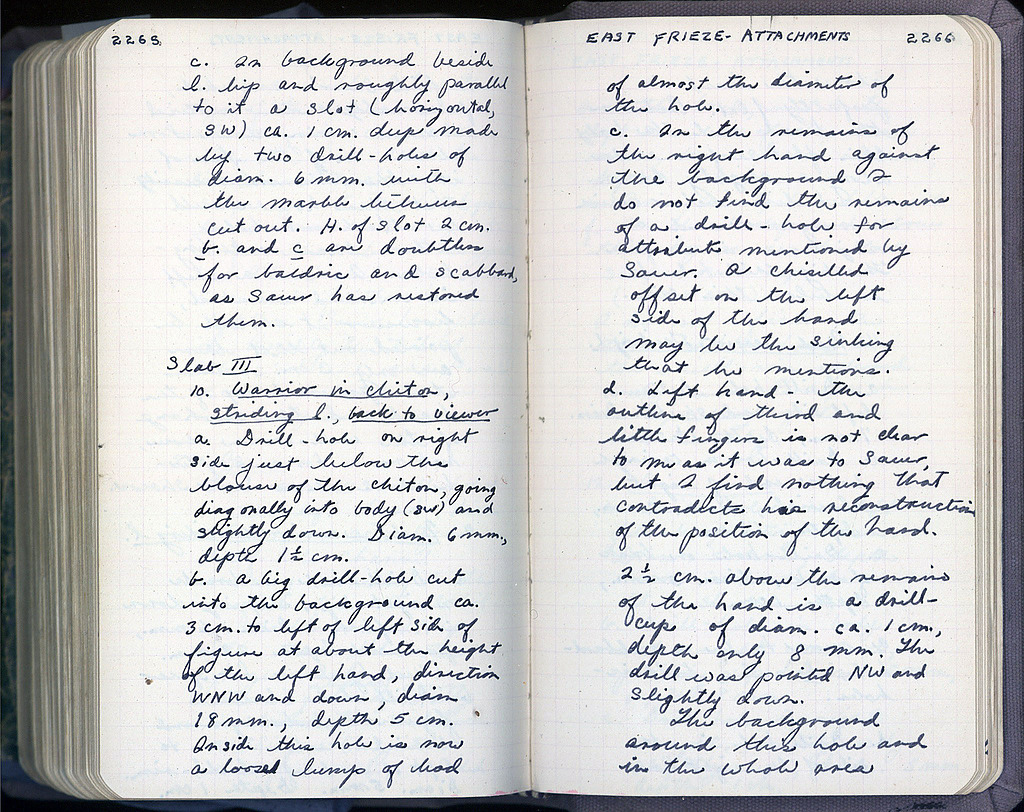 2265
c. In background beside
l. hip and roughly parallel
to it a slot (horizontal,
SW) ca. 1 cm. deep made
by two drill-holes of
diam. 6 mm. with
the marble between
cut out. H. of slot 2 cm.
b. and c are doubtless
for baldric and scabbard,
as Sauer has restored
them.
Slab III
10. Warrior in chiton,
striding l., back to viewer
a. Drill-hole on right
side just below the
blouse of the chiton, going
diagonally into body (SW) and
slightly down. Diam. 6 mm.,
depth 1½ cm.
b. A big drill-hole cut
into the background ca.
3 cm. to left of left side of
figure at about the height
of the left hand, direction
WNW and down, diam
18 mm., depth 5 cm.
Inside this hole is now
a loose lump of lead
EAST FRIEZE - ATTACHMENTS 2266
of almost the diameter of
the hole.
c. In the remains of
the right hand against
the background I
do not find the remains
of a drill-hole for
attribute mentioned by
Sauer. A chiselled
offset on the left
side of the hand
may be the sinking
that he mentions.
d. Left hand - the
outline of third and
little fingers is not clear
to me as it was to Sauer,
but I find nothing that
contradicts his reconstruction
of the position of the hand.
2½ cm. above the remains
of the hand is a drill-
cup of diam. ca. 1 cm.,
depth only 8 mm. The
drill was pointed NW and
slightly down.
The background
around this hole and
in the whole area